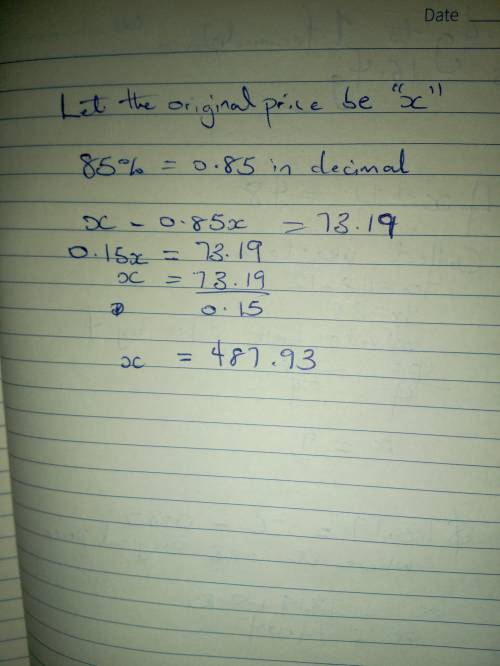 Date
Let the original price be "x"
85% = 0.85 in decimal
x - 0.85x = 73.19
0.15x = 73.19
x = 73.19
0.15
x = 487.93